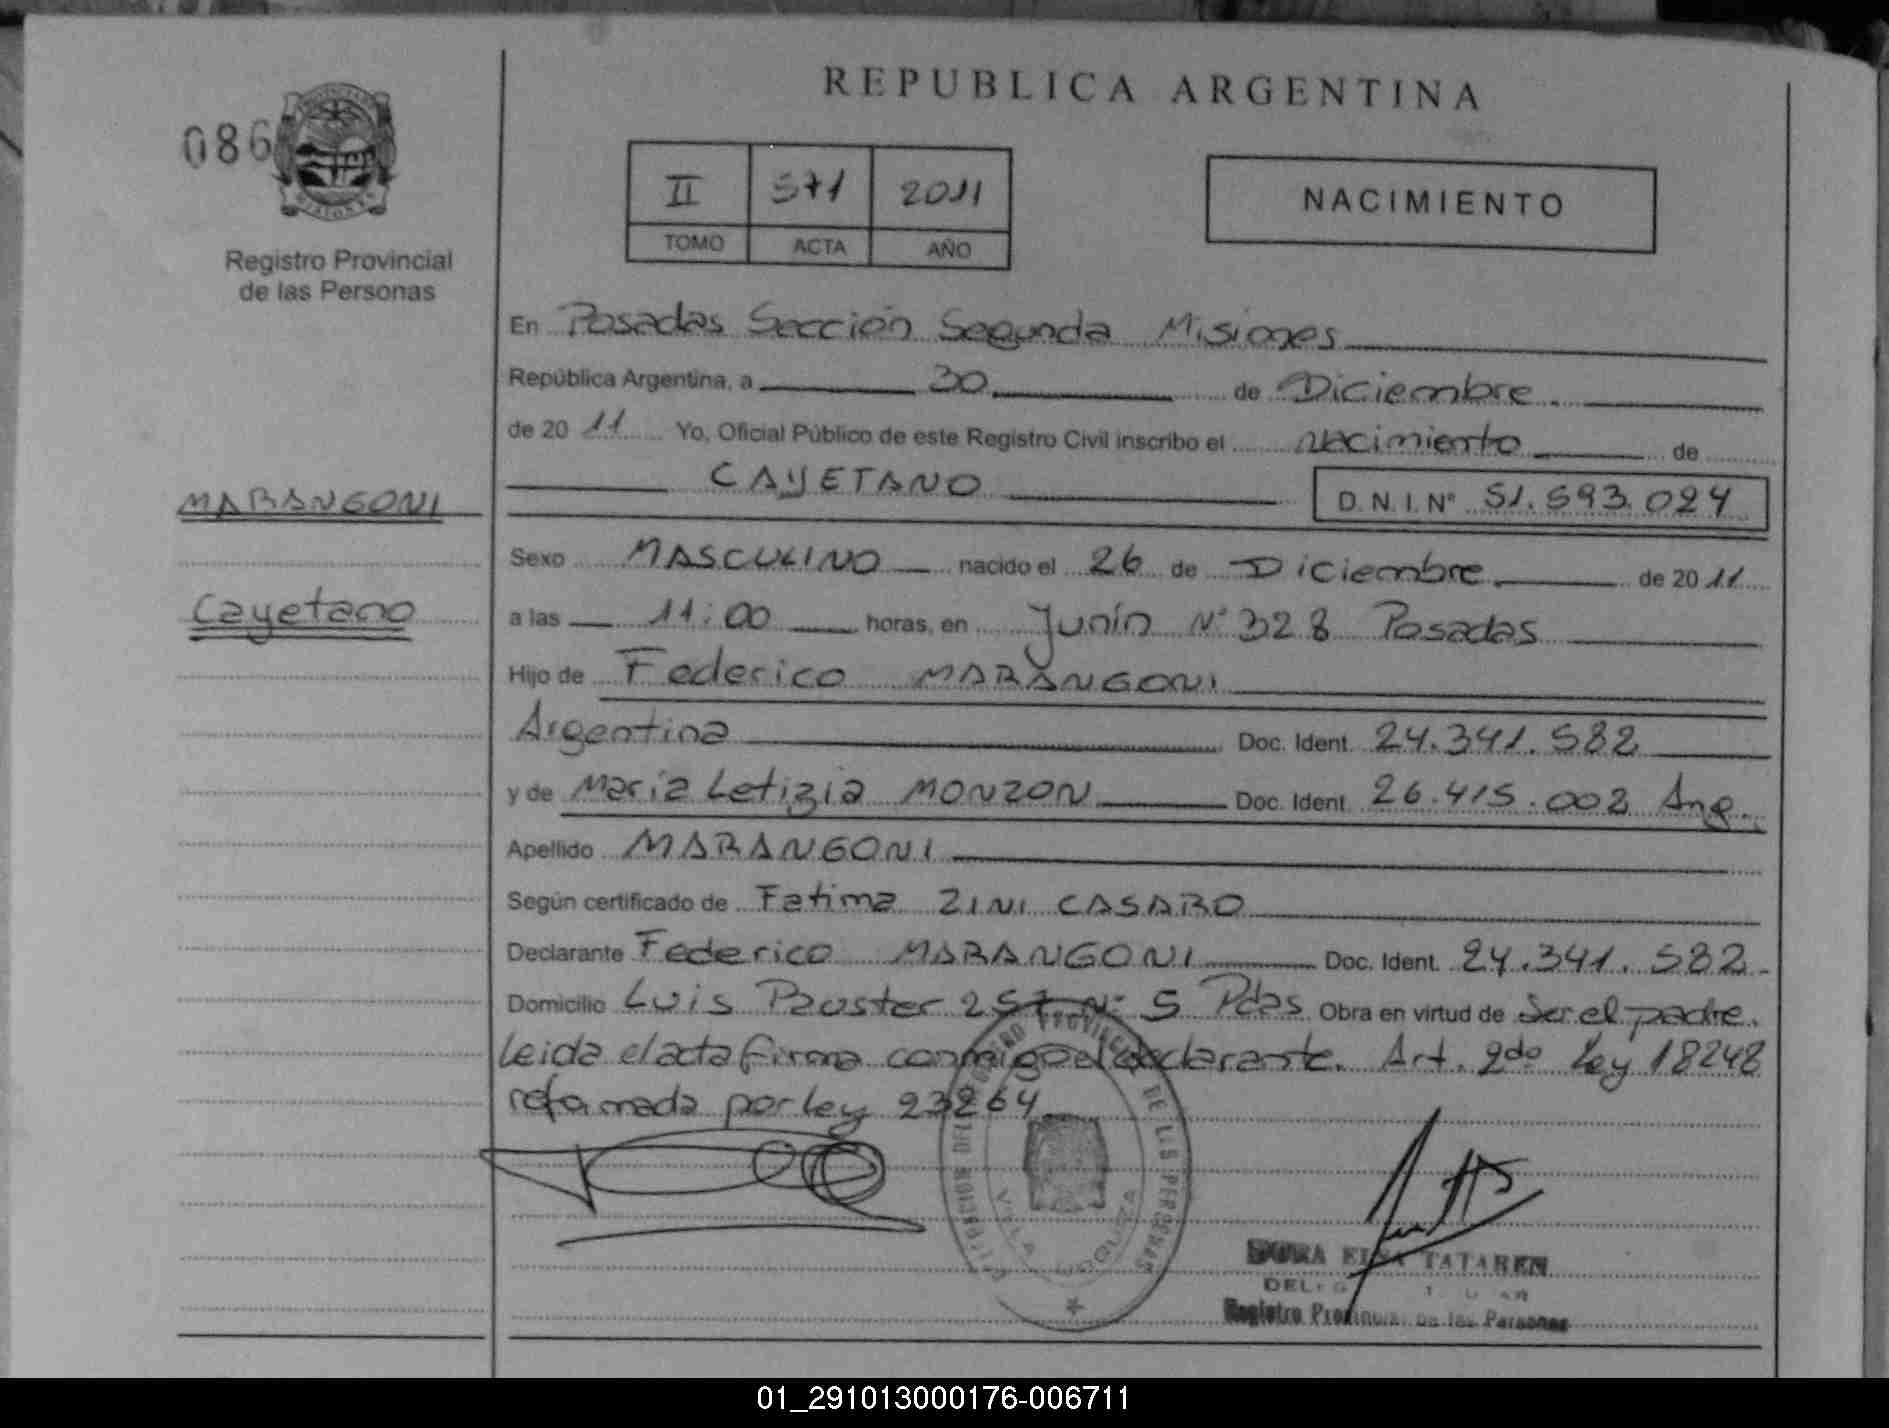 REPUBLICA ARGENTINA
086
II 571 2011
TOMO ACTA AÑO
NACIMIENTO
Registro Provincial
de las Personas
En Posadas Sección Segunda Misiones
República Argentina, a 30 de Diciembre
de 20 11 Yo, Oficial Público de este Registro Civil inscribo el nacimiento de
CAYETANO
D.N.I. Nº 51.593.024
MARANGONI
Cayetano
Sexo MASCULINO nacido el 26 de Diciembre de 20 11
a las 11:00 horas, en Junín Nº 328 Posadas
Hijo de Federico MARANGONI
Argentina Doc. Ident. 24.341.582
y de María Letizia MONZON Doc. Ident. 26.415.002 Arg.
Apellido MARANGONI
Según certificado de Fatima ZINI CASARO
Declarante Federico MARANGONI Doc. Ident. 24.341.582
Domicilio Luis Pauster 257 Nº 5 Pdas Obra en virtud de Ser el padre.
Leida el acta firma conmigo el declarante. Art. 2do Ley 18248
reformada por ley 23264
REGISTRO PROVINCIAL DE LAS PERSONAS
VILLA URQUIZA
ELSA TATAREN
Registro Provincial de las Personas
01_291013000176-006711